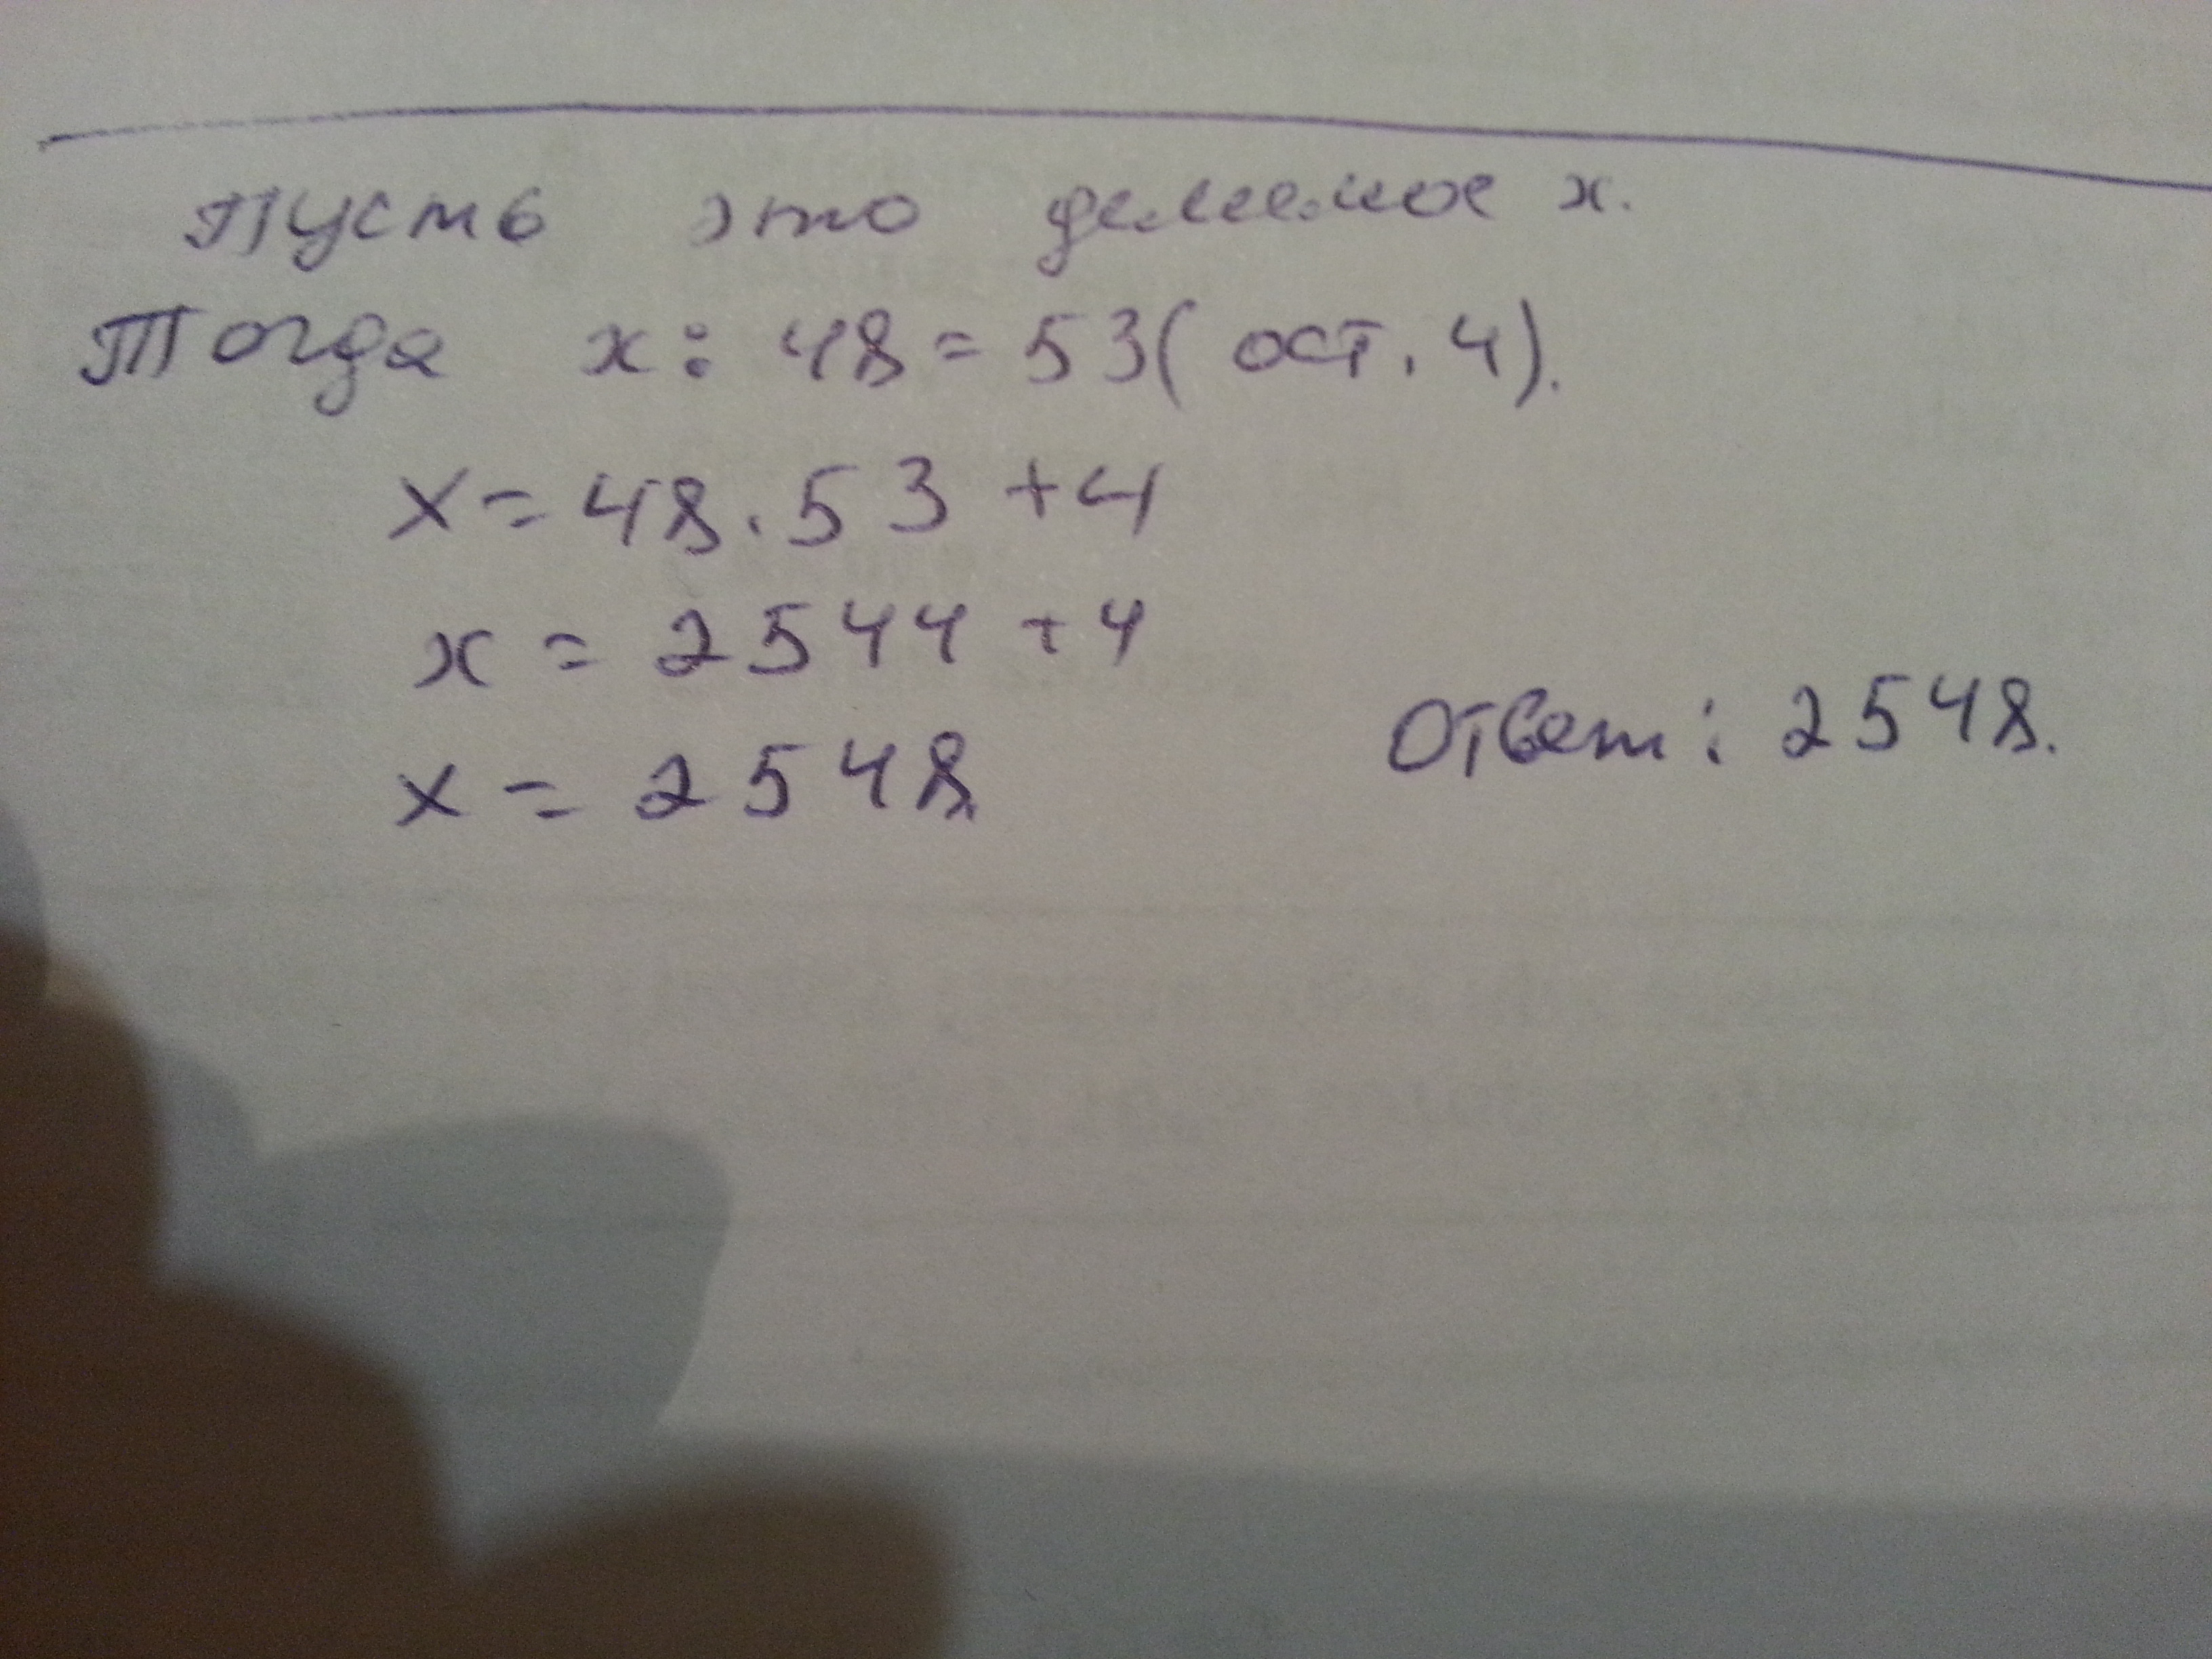 Пусть это делимое x.
Тогда x : 48 = 53 (ост. 4).
x = 48 · 53 + 4
x = 2544 + 4
x = 2548
Ответ: 2548.